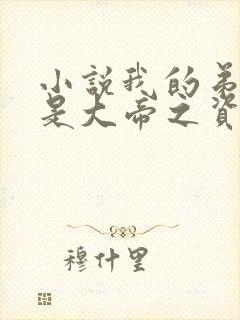 小說我的弟
是大帝之資
穆什里